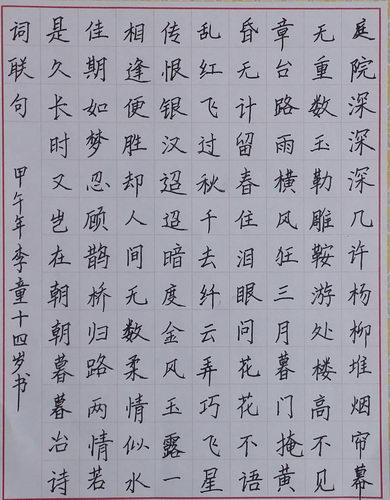 庭院深深深几许杨柳堆烟帘幕
无重数玉勒雕鞍游处楼高不见
章台路雨横风狂三月暮门掩黄
昏无计留春住泪眼问花花不语
乱红飞过秋千去纤云弄巧飞星
传恨银汉迢迢暗度金风玉露一
相逢便胜却人间无数柔情似水
佳期如梦忍顾鹊桥归路两情若
是久长时又岂在朝朝暮暮冶诗
词联句 甲午年李童十四岁书